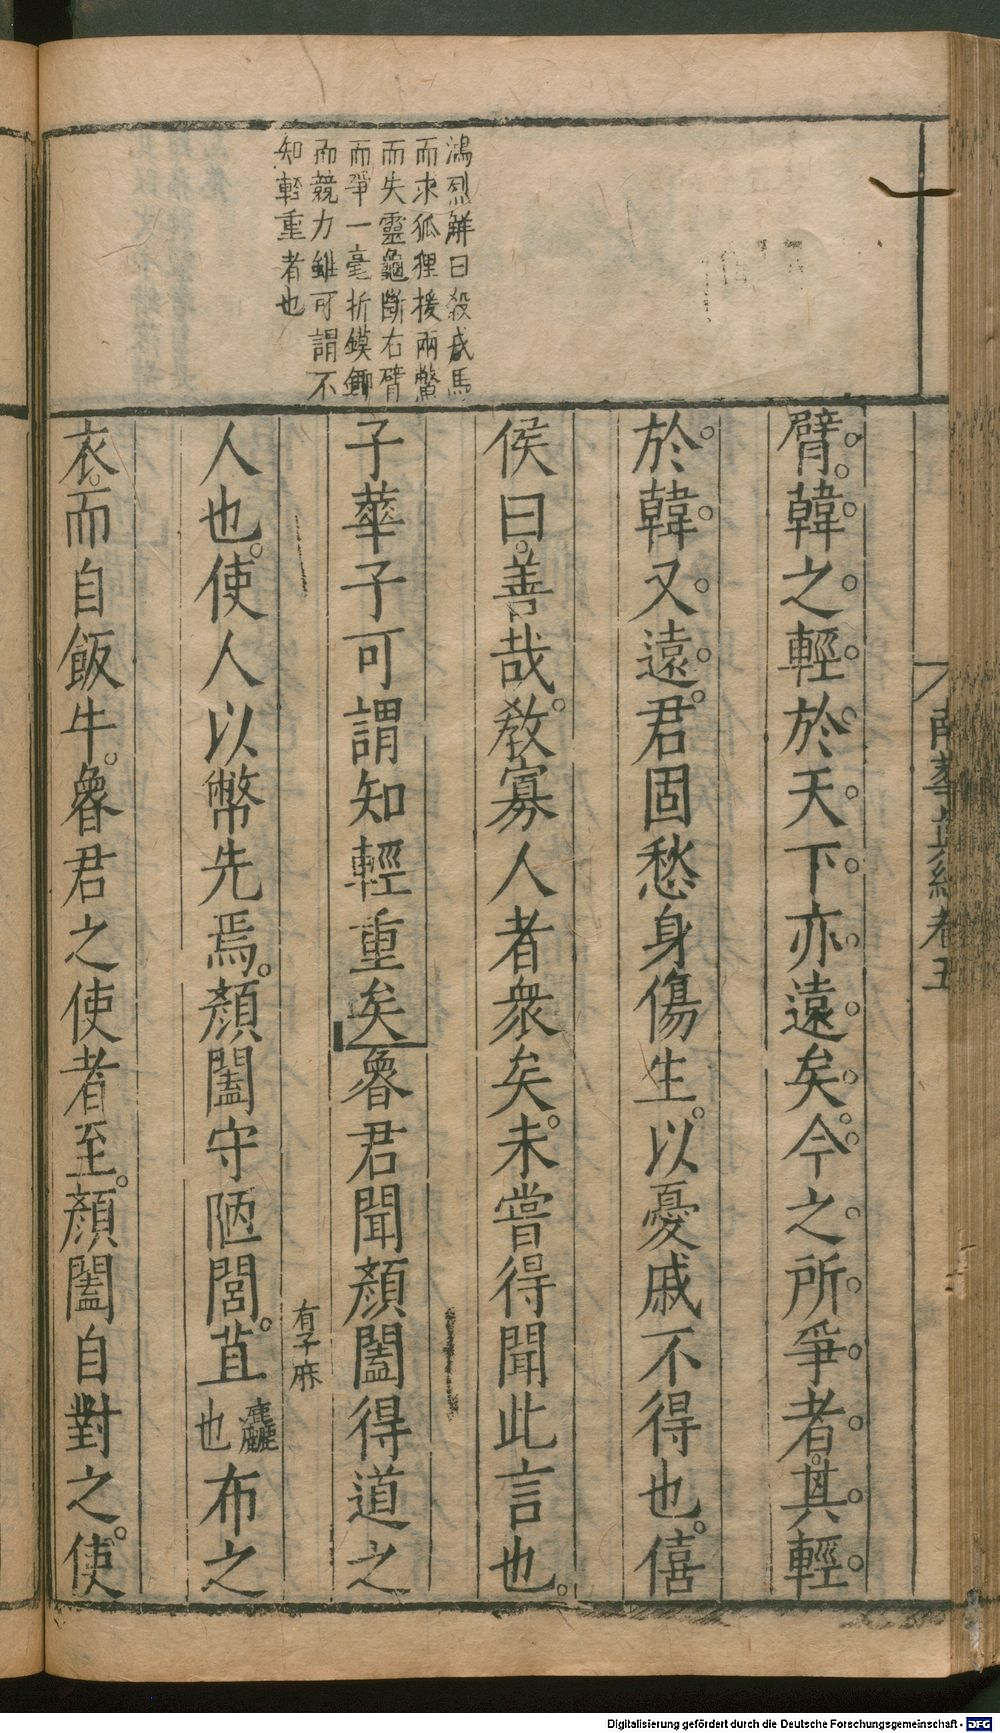 鴻烈解曰殺戎馬
而求狐狸援兩鱉
而失靈龜斷右臂
而爭一毫折鏌鋣
而競力雖可謂不
知輕重者也
南華眞經卷五
臂。韓之輕於天下亦遠矣。今之所爭者。其輕
於韓又遠。君固愁身傷生。以憂戚不得也。僖
侯曰。善哉。敎寡人者衆矣。未嘗得聞此言也。
子華子可謂知輕重矣魯君聞顏闔得道之
有子麻
人也。使人以幣先焉。顏闔守陋閭。苴麤也布之
衣。而自飯牛。魯君之使者至。顏闔自對之。使
Digitalisierung gefördert durch die Deutsche Forschungsgemeinschaft - DFG